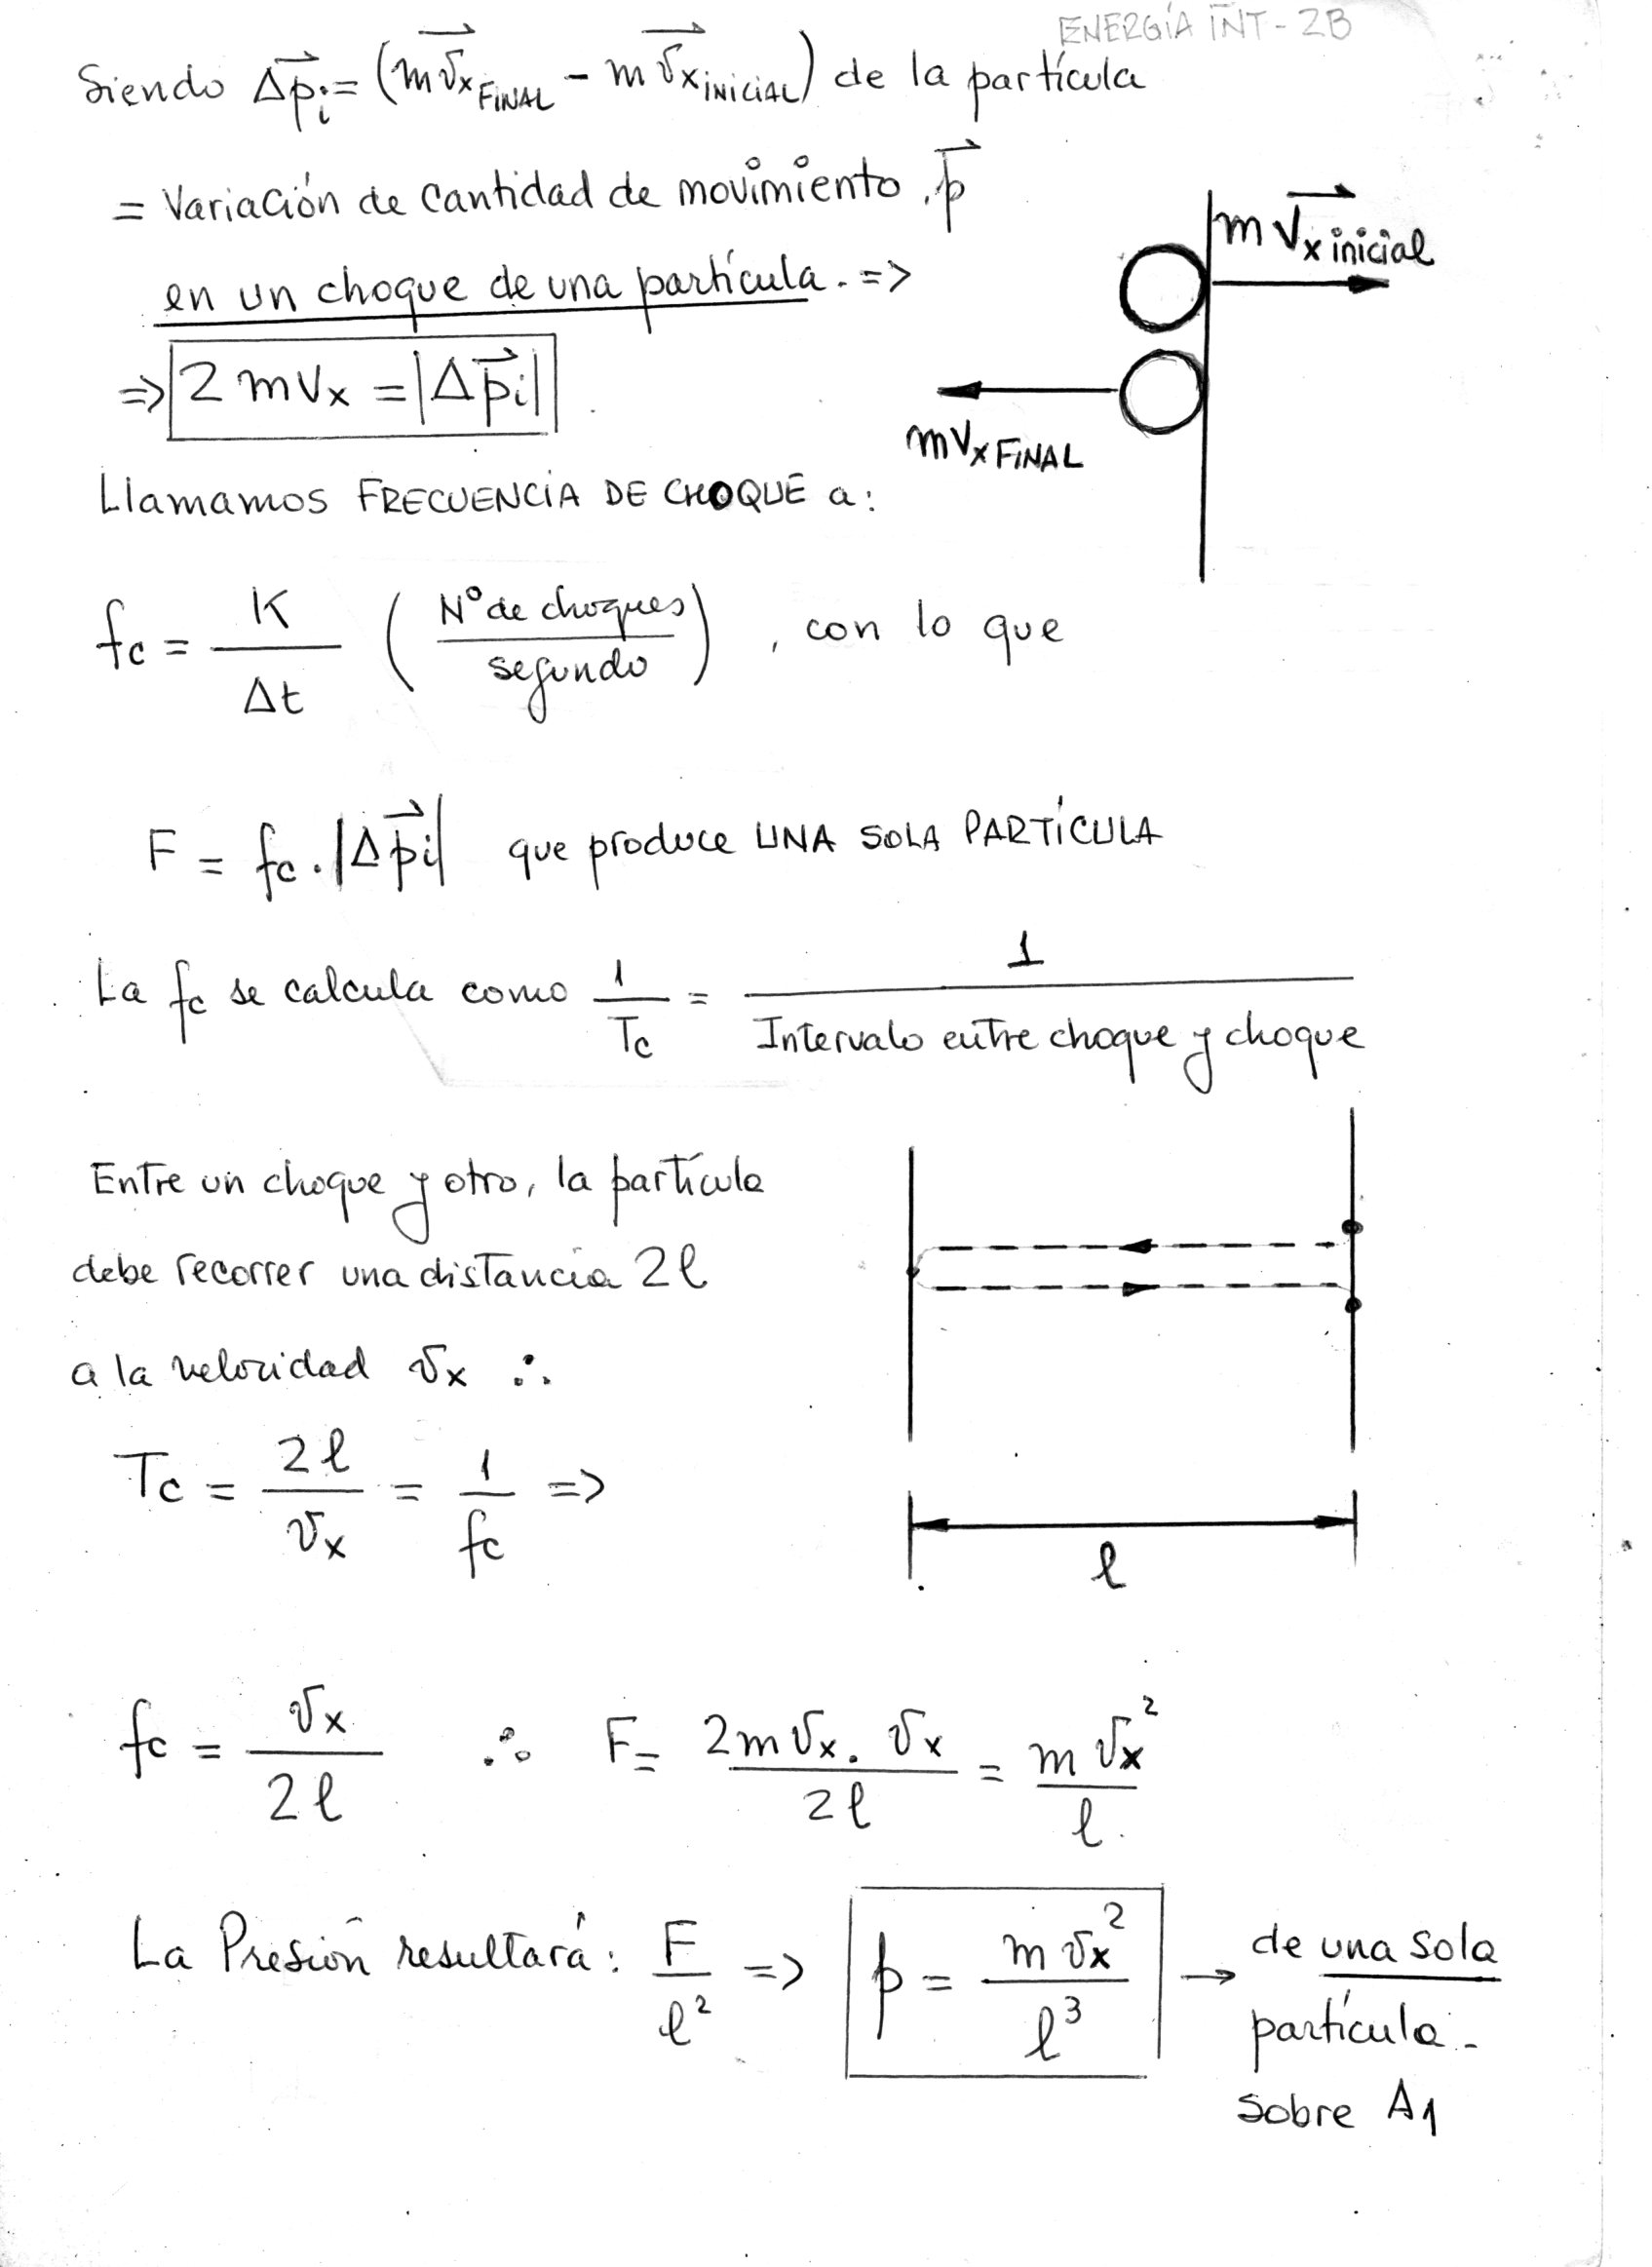 ENERGÍA INT-2B
Siendo Δp⃗i = (m v⃗x FINAL - m v⃗x INICIAL) de la partícula
= Variación de cantidad de movimiento, p⃗
en un choque de una partícula. =>
=> 2 m vx = |Δp⃗i|
m v⃗x inicial
m vx FINAL
Llamamos FRECUENCIA DE CHOQUE a:
fc = K / Δt (Nº de choques / segundo), con lo que
F = fc . |Δp⃗i| que produce UNA SOLA PARTÍCULA
La fc se calcula como 1 / Tc = 1 / Intervalo entre choque y choque
Entre un choque y otro, la partícula
debe recorrer una distancia 2l
a la velocidad vx ∴
Tc = 2l / vx = 1 / fc =>
l
fc = vx / 2l ∴ F = 2 m vx . vx / 2l = m vx² / l
La Presión resultará: F / l² => p = m vx² / l³ → de una sola
partícula -
sobre A1